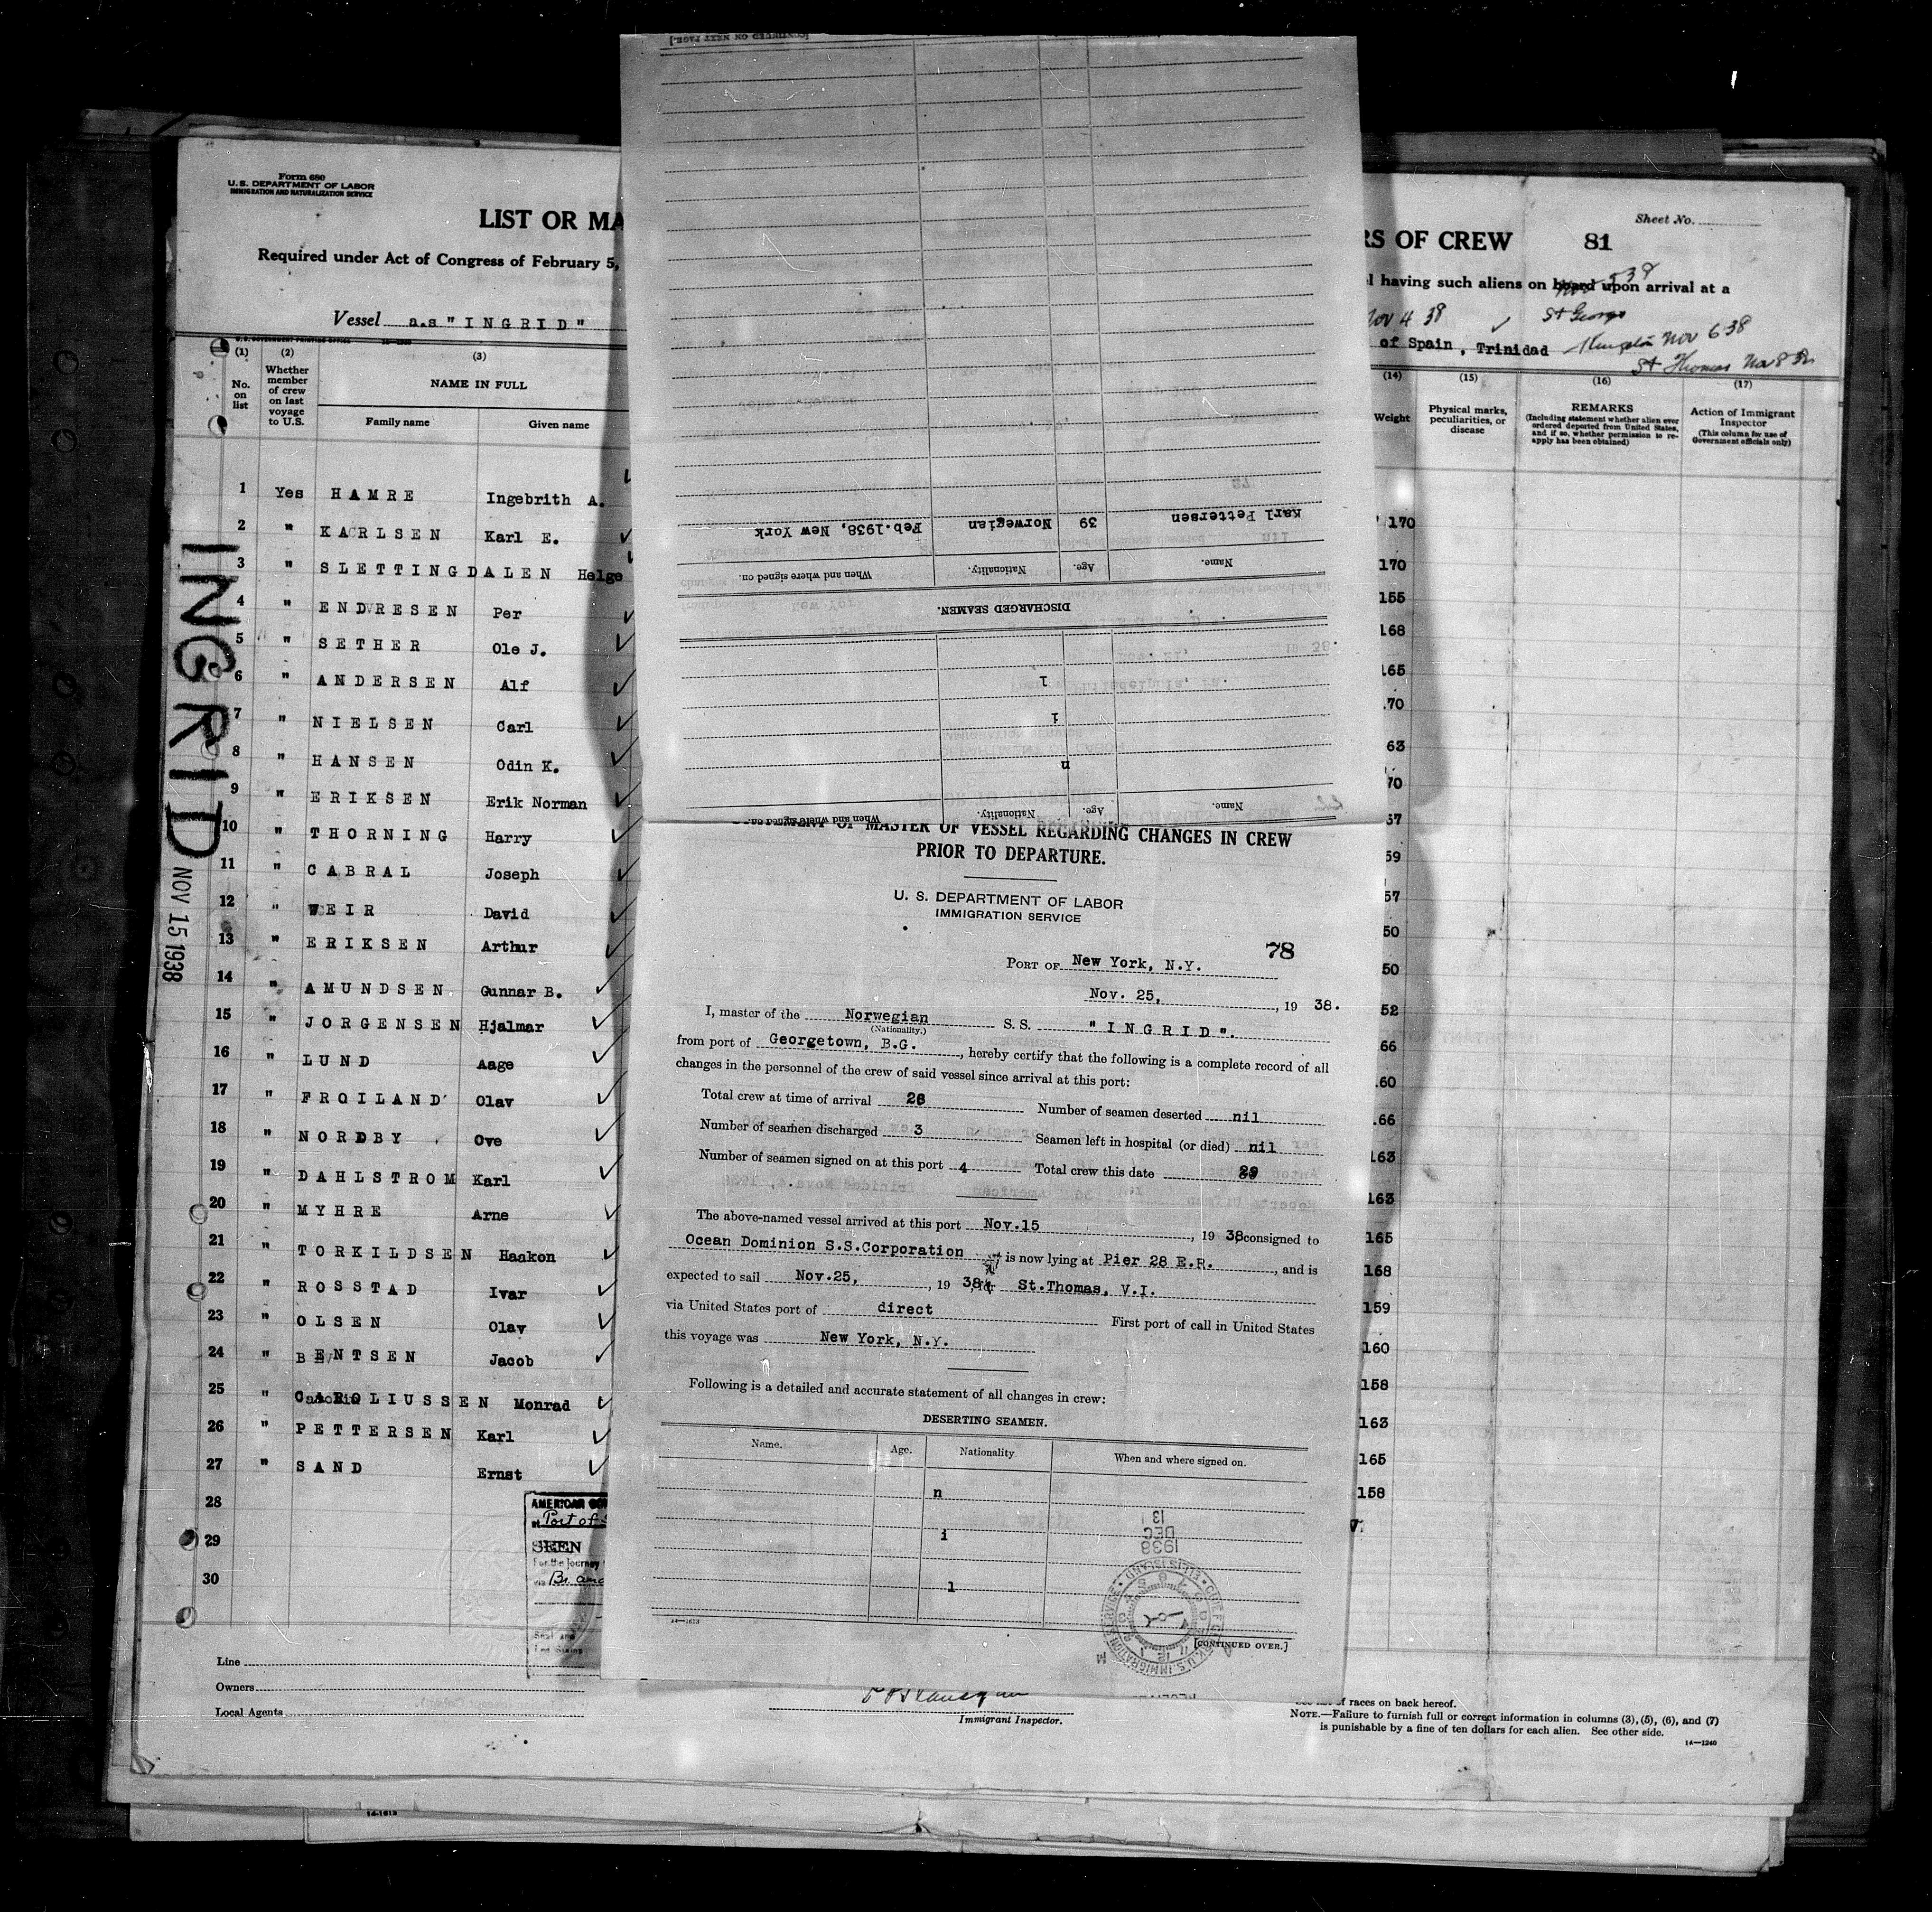 Form 680
U.S. DEPARTMENT OF LABOR
IMMIGRATION AND NATURALIZATION SERVICE
LIST OR MA
Required under Act of Congress of February 5,
Vessel a.s "INGRID"
(1) (2) (3)
No. on list
Whether member of crew on last voyage to U.S.
NAME IN FULL
Family name Given name
1 Yes HAMRE Ingebrith A.
2 " KARLSEN Karl E.
3 " SLETTINGDALEN Helge
4 " ENDRESEN Per
5 " SETHER Ole J.
6 " ANDERSEN Alf
7 " NIELSEN Carl
8 " HANSEN Odin K.
9 " ERIKSEN Erik Norman
10 " THORNING Harry
11 " CABRAL Joseph
12 " WEIR David
13 " ERIKSEN Arthur
14 " AMUNDSEN Gunnar B.
15 " JORGENSEN Hjalmar
16 " LUND Aage
17 " FROILAND Olav
18 " NORDBY Ove
19 " DAHLSTROM Karl
20 " MYHRE Arne
21 " TORKILDSEN Haakon
22 " ROSSTAD Ivar
23 " OLSEN Olav
24 " BENTSEN Jacob
25 " CAROLIUSSEN Monrad
26 " PETTERSEN Karl
27 " SAND Ernst
28
29
30
INGRID
NOV 15 1938
AMERICAN
Port of
SEEN
For the journey
Line
Owners
Local Agents
Immigrant Inspector.
14-1613
[CONTINUED ON NEXT PAGE.]
Karl Pettersen 39 Norwegian Feb.1938, New York
Name. Age. Nationality. When and where signed on.
DISCHARGED SEAMEN.
l
i
n
Name. Age. Nationality. When and where signed on.
OF MASTER OF VESSEL REGARDING CHANGES IN CREW
PRIOR TO DEPARTURE.
U. S. DEPARTMENT OF LABOR
IMMIGRATION SERVICE
78
PORT OF New York, N.Y.
Nov. 25, , 19 38.
I, master of the Norwegian S. S. "INGRID".
(Nationality.)
from port of Georgetown, B.G. , hereby certify that the following is a complete record of all
changes in the personnel of the crew of said vessel since arrival at this port:
Total crew at time of arrival 28 Number of seamen deserted nil
Number of seamen discharged 3 Seamen left in hospital (or died) nil
Number of seamen signed on at this port 4 Total crew this date 29
The above-named vessel arrived at this port Nov.15 , 19 38 consigned to
Ocean Dominion S.S.Corporation is now lying at Pier 28 E.R. , and is
expected to sail Nov.25, , 19 38, St.Thomas, V.I.
via United States port of direct First port of call in United States
this voyage was New York, N.Y.
Following is a detailed and accurate statement of all changes in crew:
DESERTING SEAMEN.
Name. Age. Nationality. When and where signed on.
n
i
l
1938
DEC
13
U.S. IMMIGRATION SERVICE
ELLIS ISLAND
14-1623
[CONTINUED OVER.]
Sheet No.
RS OF CREW 81
having such aliens on board upon arrival at a
Nov 4 38 St George
of Spain, Trinidad Kingston Nov 6 38
St Thomas Nov 8 38
(14) (15) (16) (17)
Weight
Physical marks, peculiarities, or disease
REMARKS
(Including statement whether alien ever ordered deported from United States, and if so, whether permission to reapply has been obtained)
Action of Immigrant Inspector
(This column for use of Government officials only)
170
170
155
168
165
70
63
70
57
59
57
50
50
52
66
60
66
163
163
165
168
159
160
158
163
165
158
of races on back hereof.
NOTE.—Failure to furnish full or correct information in columns (3), (5), (6), and (7)
is punishable by a fine of ten dollars for each alien. See other side.
14-1240